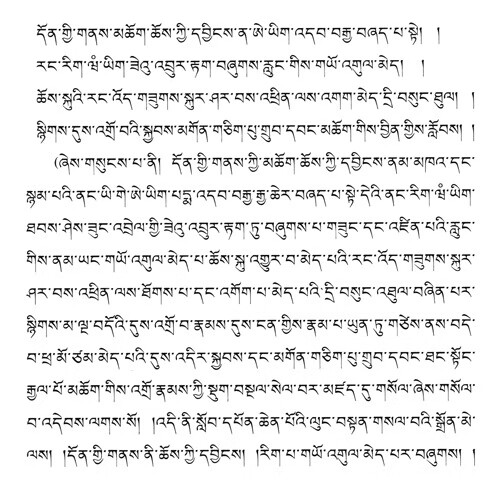 དོན་གྱི་གནས་མཆོག་ཆོས་ཀྱི་དབྱིངས་ན་ཨེ་ཡིག་འདབ་བརྒྱ་བཞད་པ་སྟེ། །
རང་རིག་ཝཾ་ཡིག་ཟེའུ་འབྲུར་རྟག་བཞུགས་རླུང་གིས་གཡོ་འགུལ་མེད། །
ཆོས་སྐུའི་རང་འོད་གཟུགས་སྐུར་ཤར་བས་འཕྲིན་ལས་འགག་མེད་དྲི་བསུང་ཐུལ། །
སྙིགས་དུས་འགྲོ་བའི་སྐྱབས་མགོན་གཅིག་པུ་གྲུབ་དབང་མཆོག་གིས་བྱིན་གྱིས་རློབས། །
(ཞེས་གསུངས་པ་ནི། དོན་གྱི་གནས་ཀྱི་མཆོག་ཆོས་ཀྱི་དབྱིངས་ནམ་མཁའ་དང་
སྙམ་པའི་ནང་ཡི་གེ་ཨེ་ཡིག་པདྨ་འདབ་བརྒྱ་རྒྱ་ཆེར་བཞད་པ་སྟེ་དེའི་ནང་རིག་ཝཾ་ཡིག་
ཐབས་ཤེས་ཟུང་འབྲེལ་གྱི་ཟེའུ་འབྲུར་རྟག་ཏུ་བཞུགས་པ་གཟུང་དང་འཛིན་པའི་རླུང་
གིས་ནམ་ཡང་གཡོ་འགུལ་མེད་པ་ཆོས་སྐུ་འགྱུར་བ་མེད་པའི་རང་འོད་གཟུགས་སྐུར་
ཤར་བས་འཕྲིན་ལས་ཐོགས་པ་དང་འགོག་པ་མེད་པའི་དྲི་བསུང་འཐུལ་བཞིན་པར་
སྙིགས་མ་ལྔ་བདོའི་དུས་འགྲོ་བ་རྣམས་དུས་ངན་གྱིས་རྣམ་པ་ཡུན་ཏུ་གཙེས་ནས་བདེ་
བ་ཕྲ་མོ་ཙམ་མེད་པའི་དུས་འདིར་སྐྱབས་དང་མགོན་གཅིག་པུ་གྲུབ་དབང་ཐང་སྟོང་
རྒྱལ་པོ་མཆོག་གིས་འགྲོ་རྣམས་ཀྱི་སྡུག་བསྔལ་སེལ་བར་མཛད་དུ་གསོལ་ཞེས་གསོལ་
བ་འདེབས་ལགས་སོ། །འདི་ནི་སློབ་དཔོན་ཆེན་པོའི་ལུང་བསྟན་གསལ་བའི་སྒྲོན་མེ་
ལས། །དོན་གྱི་གནས་ནི་ཆོས་ཀྱི་དབྱིངས། །རིག་པ་གཡོ་འགུལ་མེད་པར་བཞུགས། །